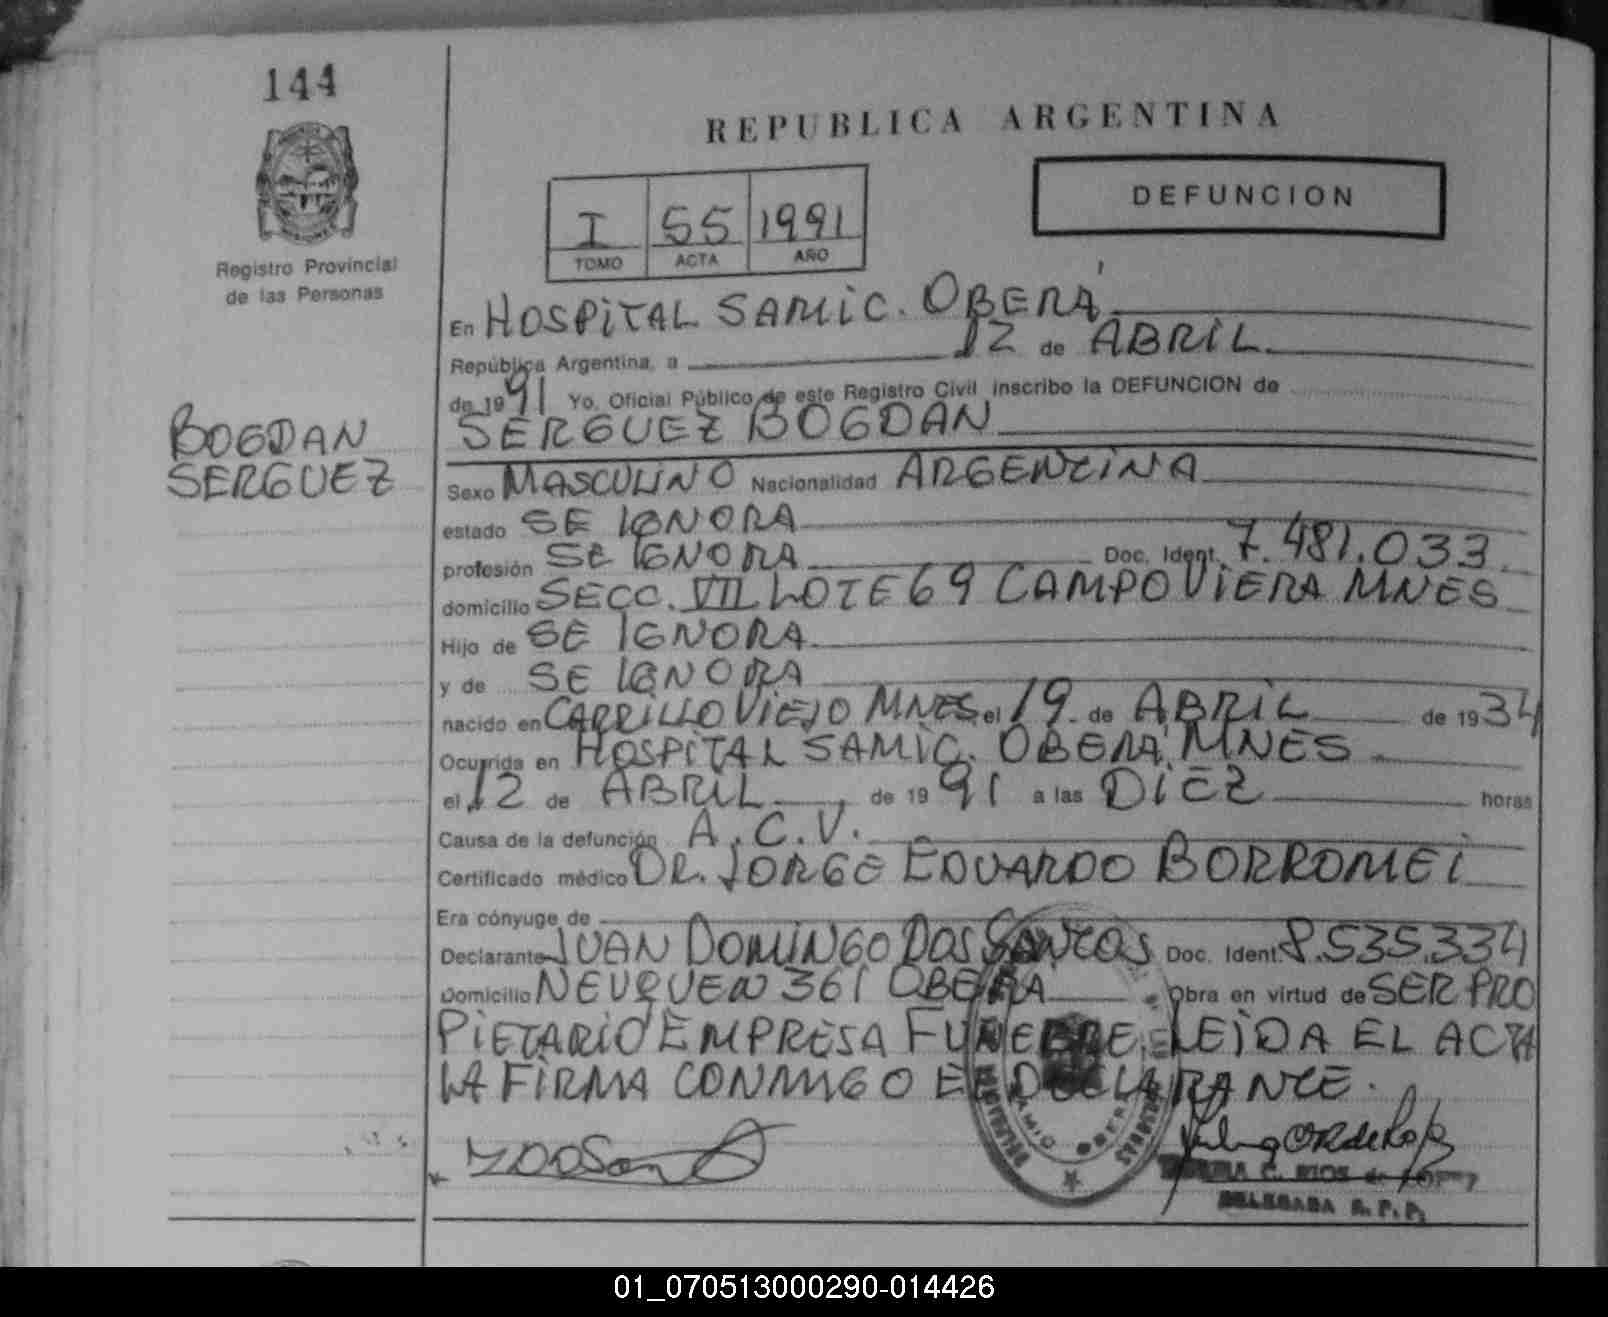 144
REPUBLICA ARGENTINA
DEFUNCION
I 55 1991
TOMO ACTA AÑO
Registro Provincial
de las Personas
En HOSPITAL SAMIC. OBERÁ
República Argentina, a 12 de ABRIL
de 1991 Yo, Oficial Público de este Registro Civil inscribo la DEFUNCION de
BOGDAN
SERGUEZ
SERGUEZ BOGDAN
Sexo MASCULINO Nacionalidad ARGENTINA
estado SE IGNORA
profesión SE IGNORA Doc. Ident. 7.481.033
domicilio SECC. VII LOTE 69 CAMPO VIERA MNES
Hijo de SE IGNORA
y de SE IGNORA
nacido en CARRILLO VIEJO MNES el 19 de ABRIL de 1934
Ocurrida en HOSPITAL SAMIC. OBERÁ MNES
el 12 de ABRIL de 1991 a las DIEZ horas
Causa de la defunción A.C.V.
Certificado médico DR. JORGE EDUARDO BORROMEI
Era cónyuge de
Declarante JUAN DOMINGO DOS SANTOS Doc. Ident. 8.535.334
Domicilio NEUQUEN 361 OBERA Obra en virtud de SER PRO
PIETARIO EMPRESA FUNEBRE LEIDA EL ACTA
LA FIRMA CONMIGO EL DECLARANTE.
C. RIOS de LOPEZ
DELEGADA R.P.P.
01_070513000290-014426